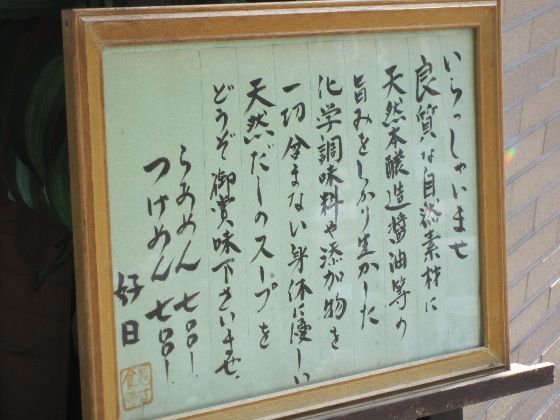 いらっしゃいませ
良質な自然素材に
天然本醸造醤油等の
旨みをしかり生かした
化学調味料や添加物を
一切含まない身体に優しい
天然だしのスープを
どうぞ御賞味下さいませ。
らあめん 七〇〇ー
つけめん 七〇〇ー
好日